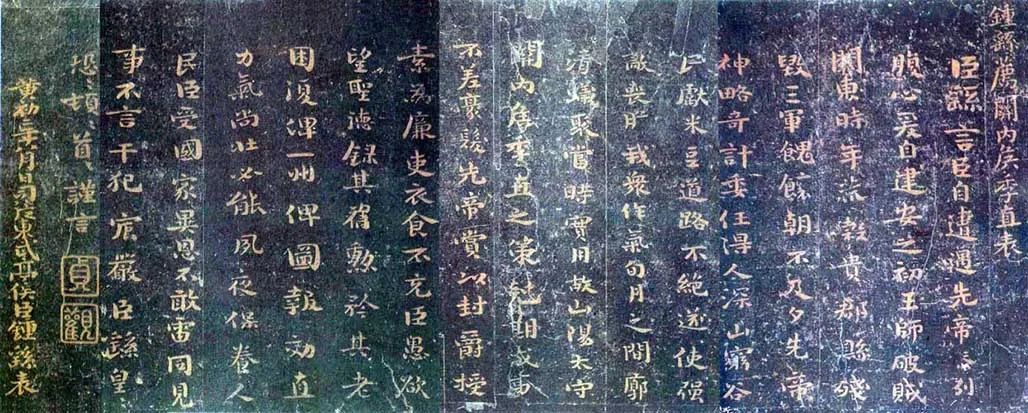 鍾繇薦關内侯季直表
臣繇言臣自遭遇先帝忝列
腹心爰自建安之初王師破賊
關東時年荒榖貴郡縣殘
毀三軍餽饟朝不及夕先帝
神略奇計委任得人深山窮谷
民獻米豆道路不絕遂使强
敵喪膽我衆作氣旬月之間廓
清蟻聚當時實用故山陽太守
關内侯季直之策尅期成事
不差豪髮先帝賞以封爵授
素爲廉吏衣食不充臣愚欲
望聖德錄其舊勲矜其老
困復俾一州俾圖報効直
力氣尚壯必能夙夜保養人
民臣受國家異恩不敢雷同見
事不言干犯宸嚴臣繇皇
恐頓首謹言
貞觀
黄初年月日司徒東武亭侯臣鍾繇表